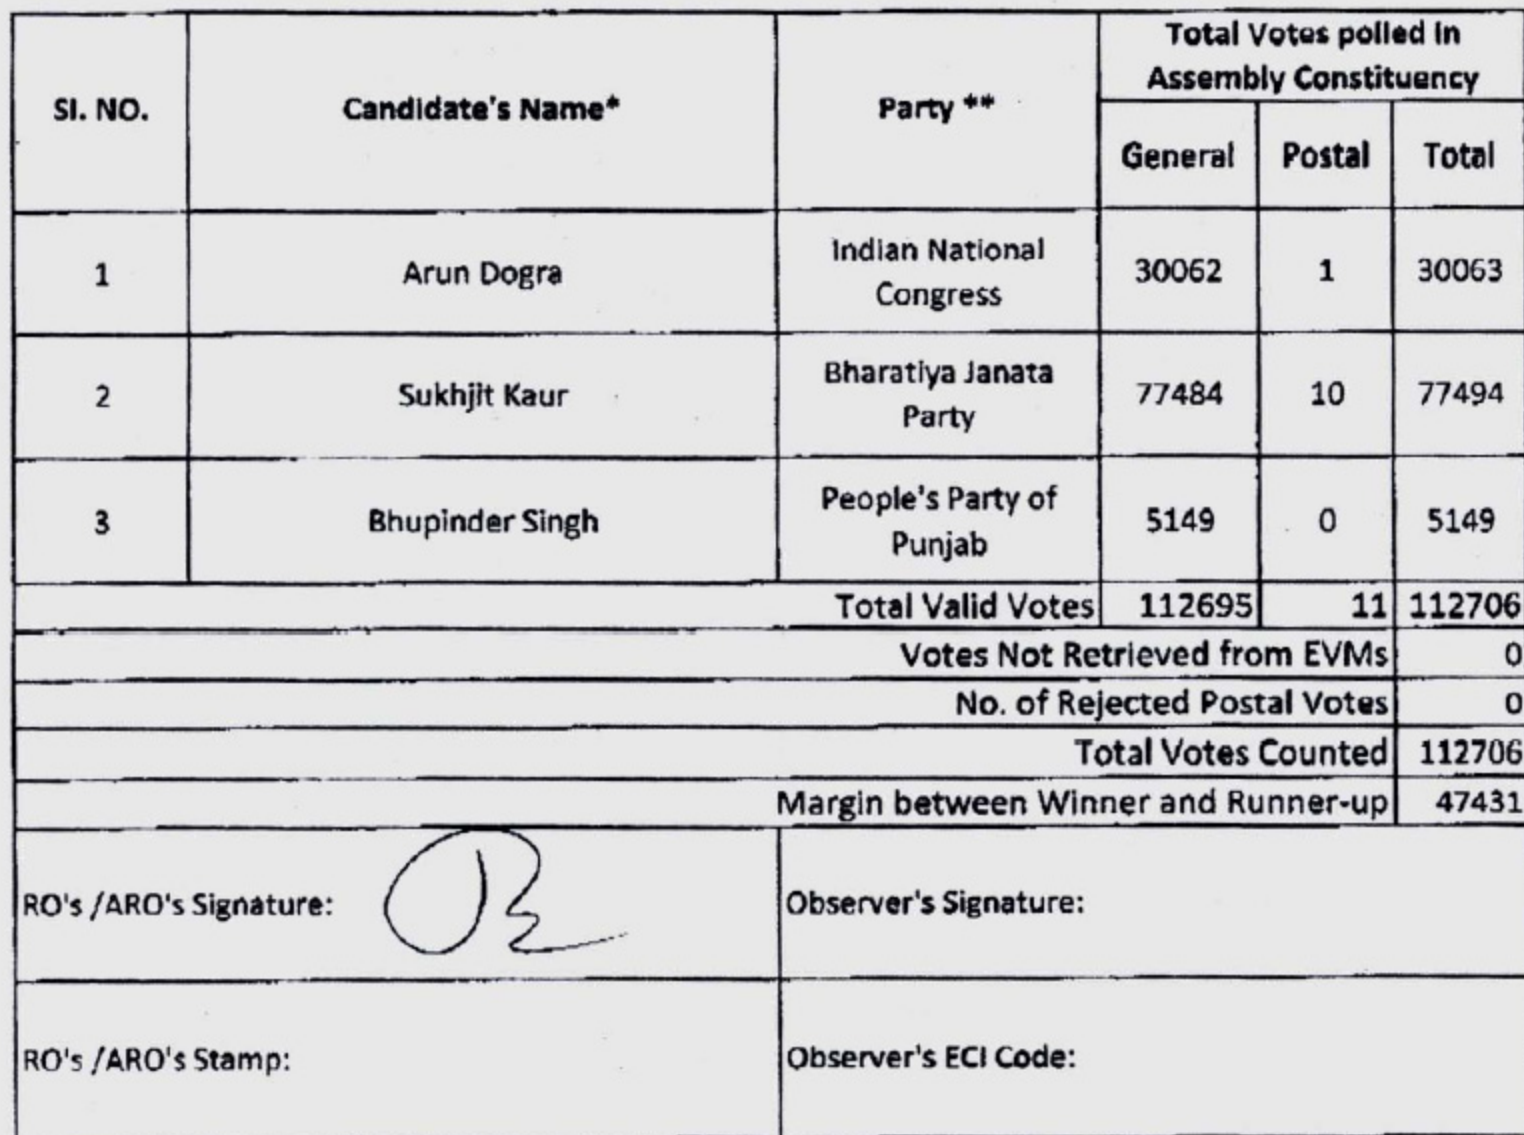 Total Votes polled in
Assembly Constituency
SI. NO. Candidate's Name* Party **
General Postal Total
1 Arun Dogra Indian National Congress 30062 1 30063
2 Sukhjit Kaur Bharatiya Janata Party 77484 10 77494
3 Bhupinder Singh People's Party of Punjab 5149 0 5149
Total Valid Votes 112695 11 112706
Votes Not Retrieved from EVMs 0
No. of Rejected Postal Votes 0
Total Votes Counted 112706
Margin between Winner and Runner-up 47431
RO's /ARO's Signature: Observer's Signature:
RO's /ARO's Stamp: Observer's ECI Code: